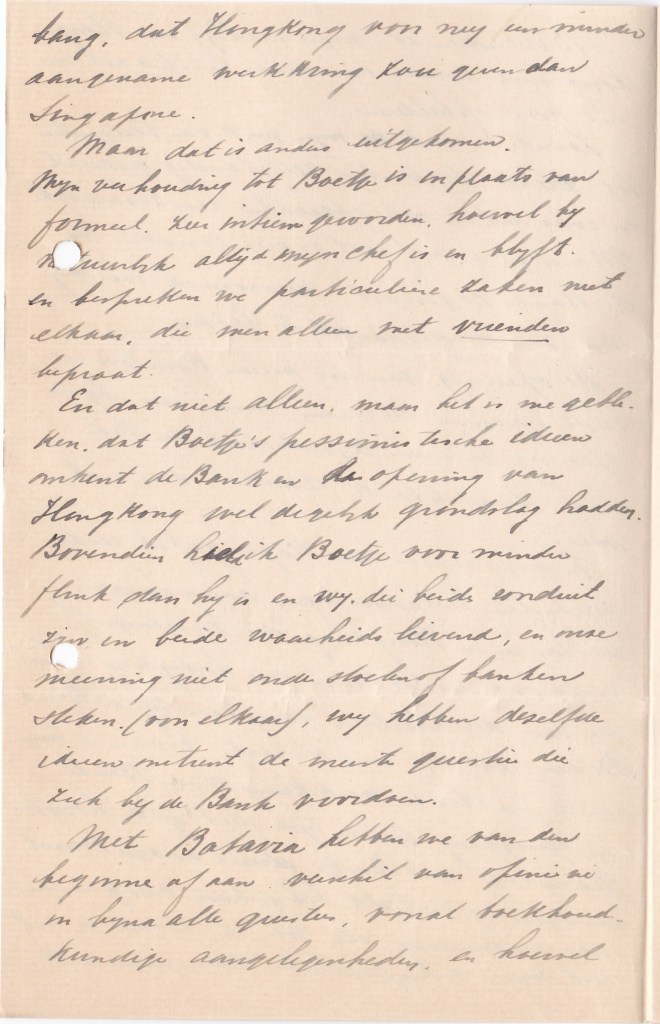 bang, dat Hongkong voor my een minder
aangename werkkring zou geven dan
Singapore.
Maar dat is anders uitgekomen.
Myn verhouding tot Boetje is in plaats van
formeel, zeer intiem geworden, hoewel hy
natuurlyk altyd myn chef is en blyft.
en bespreken we particuliere zaken met
elkaar, die men alleen met vrienden
bepraat.
En dat niet alleen, maar het is me geble-
ken, dat Boetje's pessimistische ideeen
omtrent de Bank en de opening van
Hongkong wel degelyk grondslag hadden.
Bovendien hield ik Boetje voor minder
flink dan hy is en wy, die beide ronduit
zyn en beide waarheidslievend, en onze
meening niet onder stoelen of banken
steken (voor elkaar), wy hebben dezelfde
ideeen omtrent de meeste questies die
zich by de Bank voordoen.
Met Batavia hebben we van den
beginne af aan verschil van opinie
in byna alle questies, vooral boekhoud-
kundige aangelegenheden, en hoewel